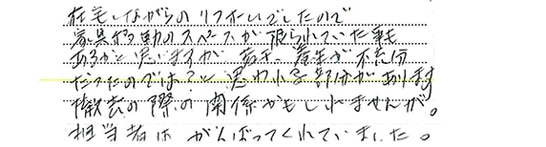 在宅しながらのリフォームでしたので
家具移動のスペースが限られていた事も
あるかと思いますが 若干、養生が不充分
だったのでは?と思われる部分があります
撤去の際の関係かもしれませんが。
担当者は がんばってくれていました。